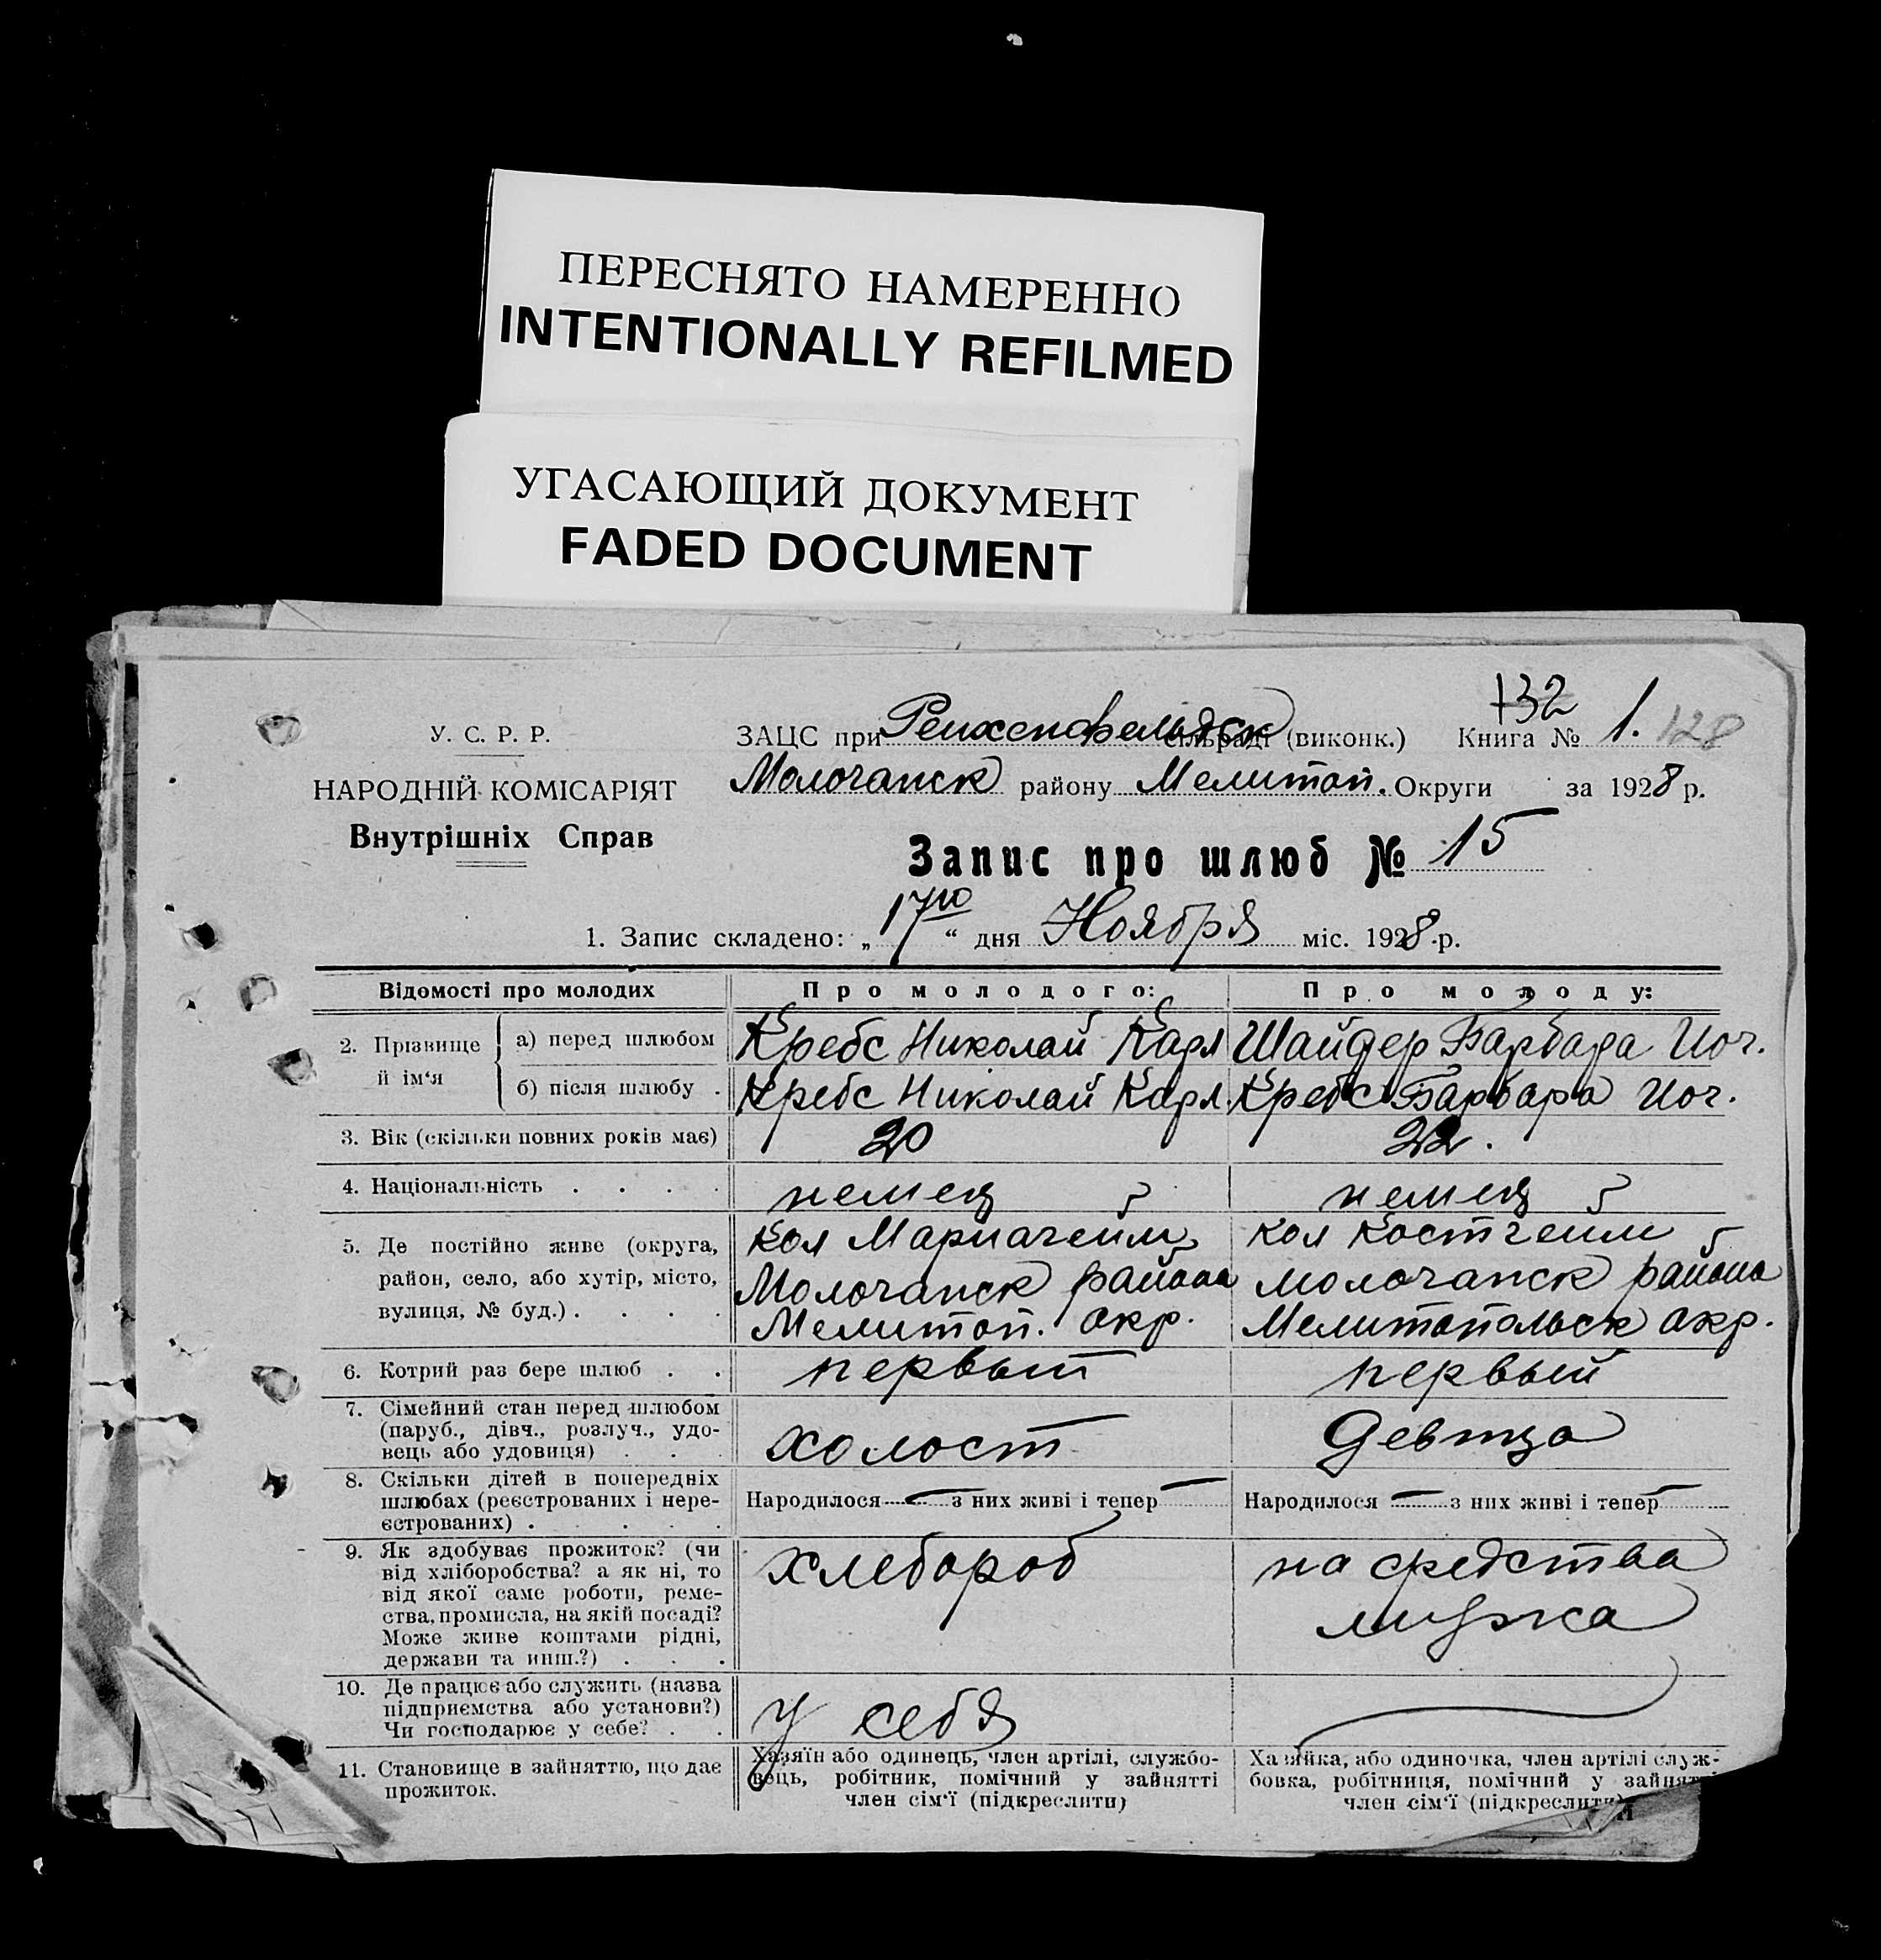 ПЕРЕСНЯТО НАМЕРЕННО
INTENTIONALLY REFILMED
УГАСАЮЩИЙ ДОКУМЕНТ
FADED DOCUMENT
132
У. С. Р. Р.
НАРОДНІЙ КОМІСАРІЯТ
Внутрішніх Справ
ЗАЦС при Рейхенфельдск сільраді (виконк.) Книга № 1. 128
Молочанск району Мелитоп. Округи за 1928 р.
Запис про шлюб № 15
1. Запис складено: „17го“ дня Ноября міс. 1928 р.
Відомості про молодих
Про молодого:
Про молоду:
2. Прізвище й ім‘я
а) перед шлюбом
Кребс Николай Карл
Шайдер Барбара Иог.
б) після шлюбу .
Кребс Николай Карл.
Кребс Барбара Иог.
3. Вік (скільки повних років має)
20
22.
4. Національність . . . .
немец
немец
5. Де постійно живе (округа,
район, село, або хутір, місто,
вулиця, № буд.) . . . .
Кол Мариагейм
Молочанск района
Мелитоп. окр.
Кол Костгейм
Молочанск района
Мелитопольск окр.
6. Котрий раз бере шлюб . .
первый
первый
7. Сімейний стан перед шлюбом
(паруб., дівч., розлуч., удо-
вець або удовиця) . . .
холост
девица
8. Скільки дітей в попередніх
шлюбах (реєстрованих і нере-
єстрованих) . . . .
Народилося — з них живі і тепер —
Народилося — з них живі і тепер —
9. Як здобуває прожиток? (чи
від хліборобства? а як ні, то
від якої саме роботи, реме-
ства, промисла, на якій посаді?
Може живе коштами рідні,
держави та инш.?) . . .
хлебороб
на средства
мужа
10. Де працює або служить (назва
підприємства або установи?)
Чи господарює у себе? . .
у себя
11. Становище в зайняттю, що дає
прожиток.
Хазяїн або одинець, член артілі, службо-
вець, робітник, помічний у зайнятті
член сім‘ї (підкреслити)
Хазяйка, або одиночка, член артілі служ-
бовка, робітниця, помічний у зайнятті
член сім‘ї (підкреслити)